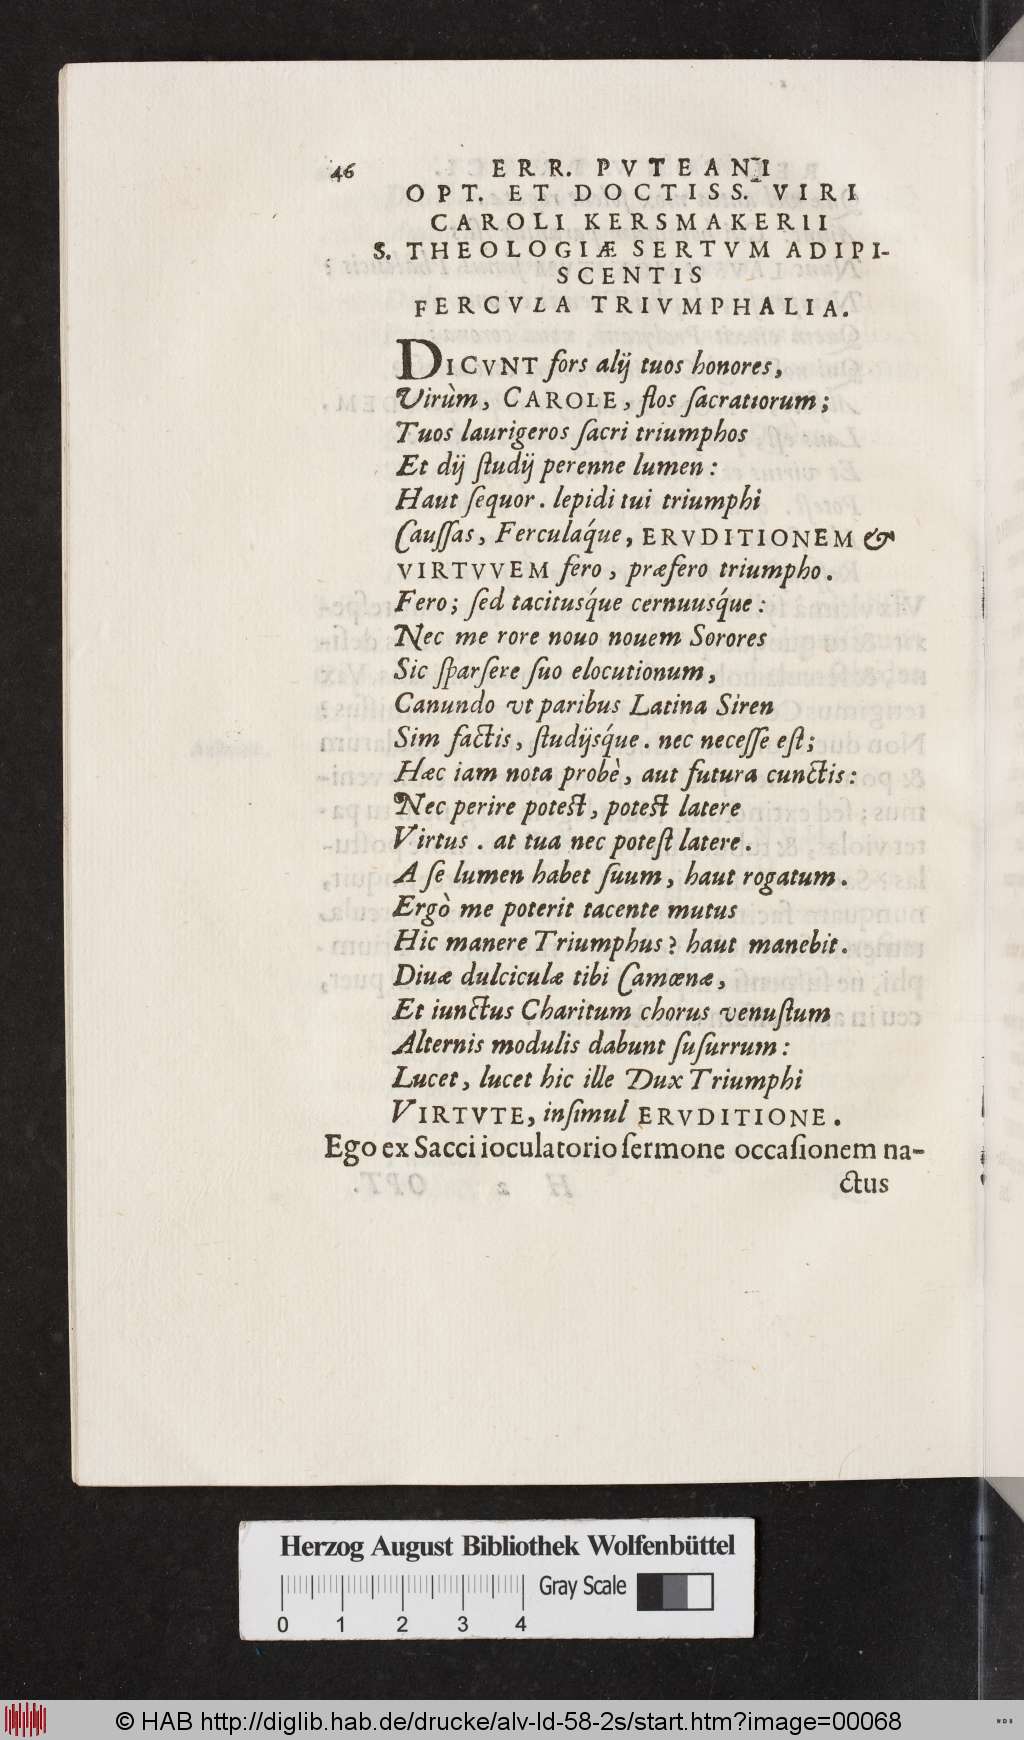 46 ERR. PVTEANI
OPT. ET DOCTISS. VIRI
CAROLI KERSMAKERII
S. THEOLOGIÆ SERTVM ADIPI-
SCENTIS
FERCVLA TRIVMPHALIA.
DICVNT fors alij tuos honores,
Virùm, CAROLE, flos ſacratiorum;
Tuos laurigeros ſacri triumphos
Et dij ſtudij perenne lumen:
Haut ſequor. lepidi tui triumphi
Cauſſas, Ferculaq́ue, ERVDITIONEM &
VIRTVVEM fero, præfero triumpho.
Fero; ſed tacitusq́ue cernuusq́ue:
Nec me rore nouo nouem Sorores
Sic ſparſere ſuo elocutionum,
Canundo vt paribus Latina Siren
Sim factis, ſtudijsq́ue. nec neceſſe eſt;
Hæc iam nota probè, aut futura cunctis:
Nec perire poteſt, poteſt latere
Virtus. at tua nec poteſt latere.
A ſe lumen habet ſuum, haut rogatum.
Ergò me poterit tacente mutus
Hic manere Triumphus? haut manebit.
Diuæ dulciculæ tibi Camœnæ,
Et iunctus Charitum chorus venuſtum
Alternis modulis dabunt ſuſurrum:
Lucet, lucet hic ille Dux Triumphi
VIRTVTE, inſimul ERVDITIONE.
Ego ex Sacci ioculatorio ſermone occaſionem na-
ctus
Herzog August Bibliothek Wolfenbüttel
Gray Scale
0 1 2 3 4
© HAB http://diglib.hab.de/drucke/alv-ld-58-2s/start.htm?image=00068